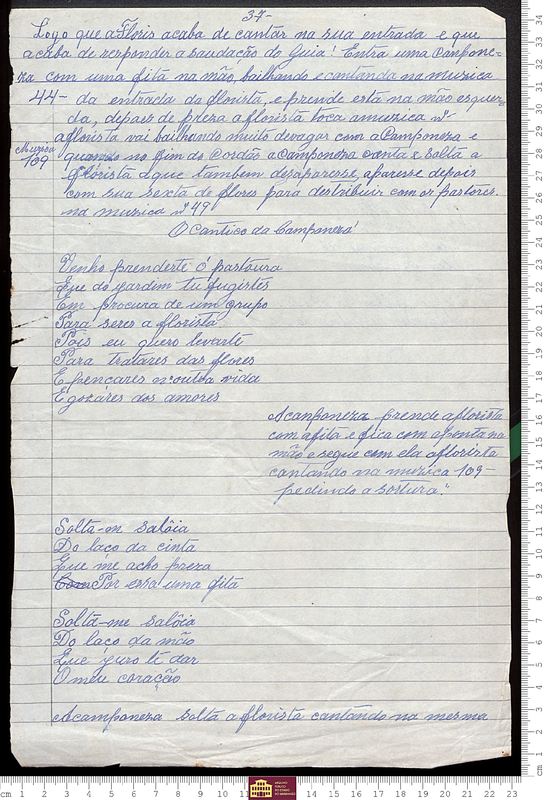 37-
Logo que a Floris acaba de cantar na sua entrada e que
acaba de responder a saudação do Guia! Entra uma Campone-
za com uma fita na mão, bailhando e cantando na muzica
44- da entrada da florista, e prende esta na mão esquer-
da, depois de preza a florista toca a muzica nº
a florista vai bailhando muito devagar com a Camponeza e
Muzica
109
quando no fim do Cordão a Camponeza canta e solta a
florista que tambem desaparesse, aparesse depois
com sua sexta de flores para destribuir com os pastores.
na muzica nº 49
O Cantico da Camponeza
Venho prenderte ó pastôura
Que do yardim tu fugistes
Em procura de um grupo
Para seres a florista.
Pois eu quero levarte
Para tratares das flores
E pençares n'outra vida
E gozares dos amores
A canponeza prende a florista
com a fita e fica com a ponta na
mão e segue com ela a florista
cantando na muzica 109-
pedindo a soltura:
Solta-m salôia
Do laço da cinta
Que me acho preza
Com Por essa uma fita
Solta-me salôia
Do laço da mão
Que yuro ti dar
O meu coração
A camponeza solta a florista cantando na mesma
cm 1 2 3 4 5 6 7 8 9 10 11 12 13 14 15 16 17 18 19 20 21 22 23